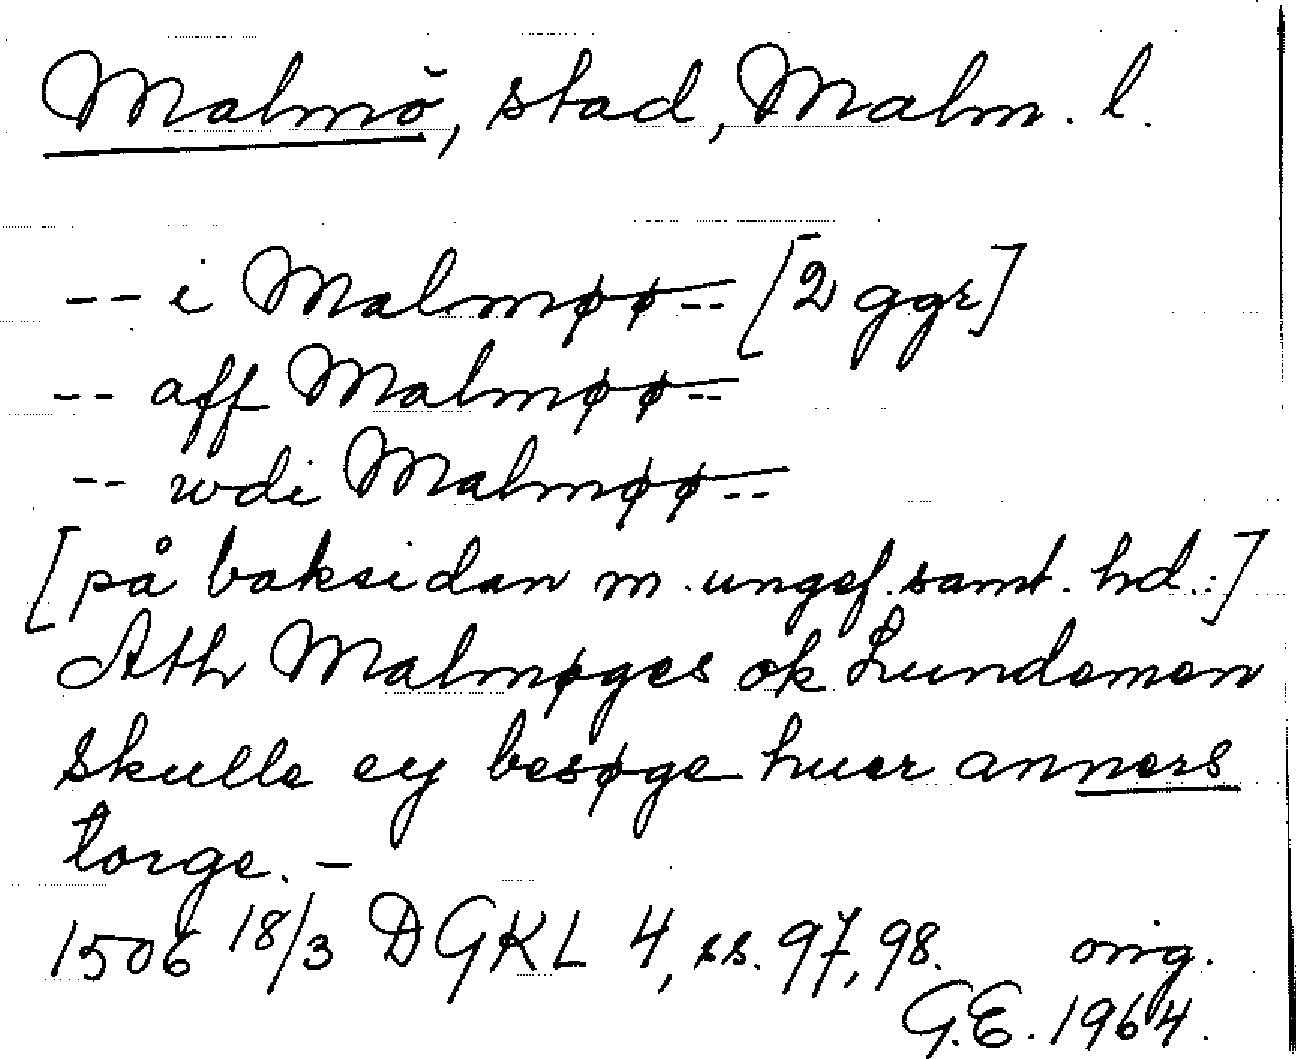 Malmö, stad, Malm. l.
-- i Malmøø -- [2 ggr]
-- aff Malmøø --
-- wdi Malmøø --
[på baksidan m. ungef. samt. hd.:]
Ath Malmøges ok Lundemen
skulle ey besøge huer anners
torge. -
1506 18/3 DGKL 4, ss. 97, 98. orig.
G.E. 1964.